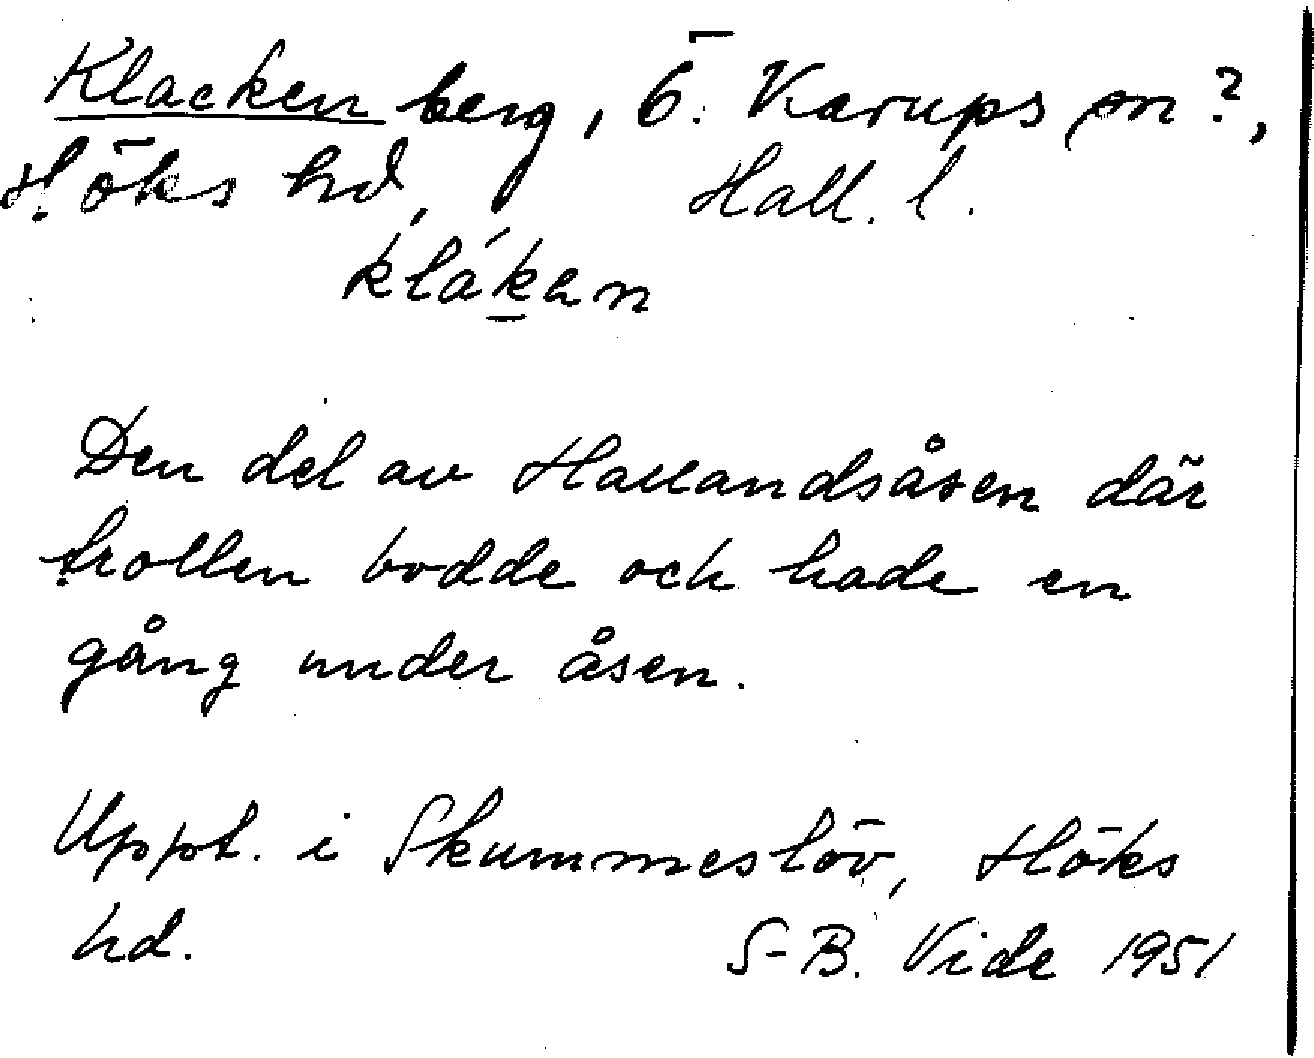 Klacken berg, Ö. Karups sn?,
Höks hd, Hall. l.
klákən
Den del av Hallandsåsen där
trollen bodde och hade en
gång under åsen.
Uppt. i Skummeslöv, Höks
hd. S-B. Vide 1951